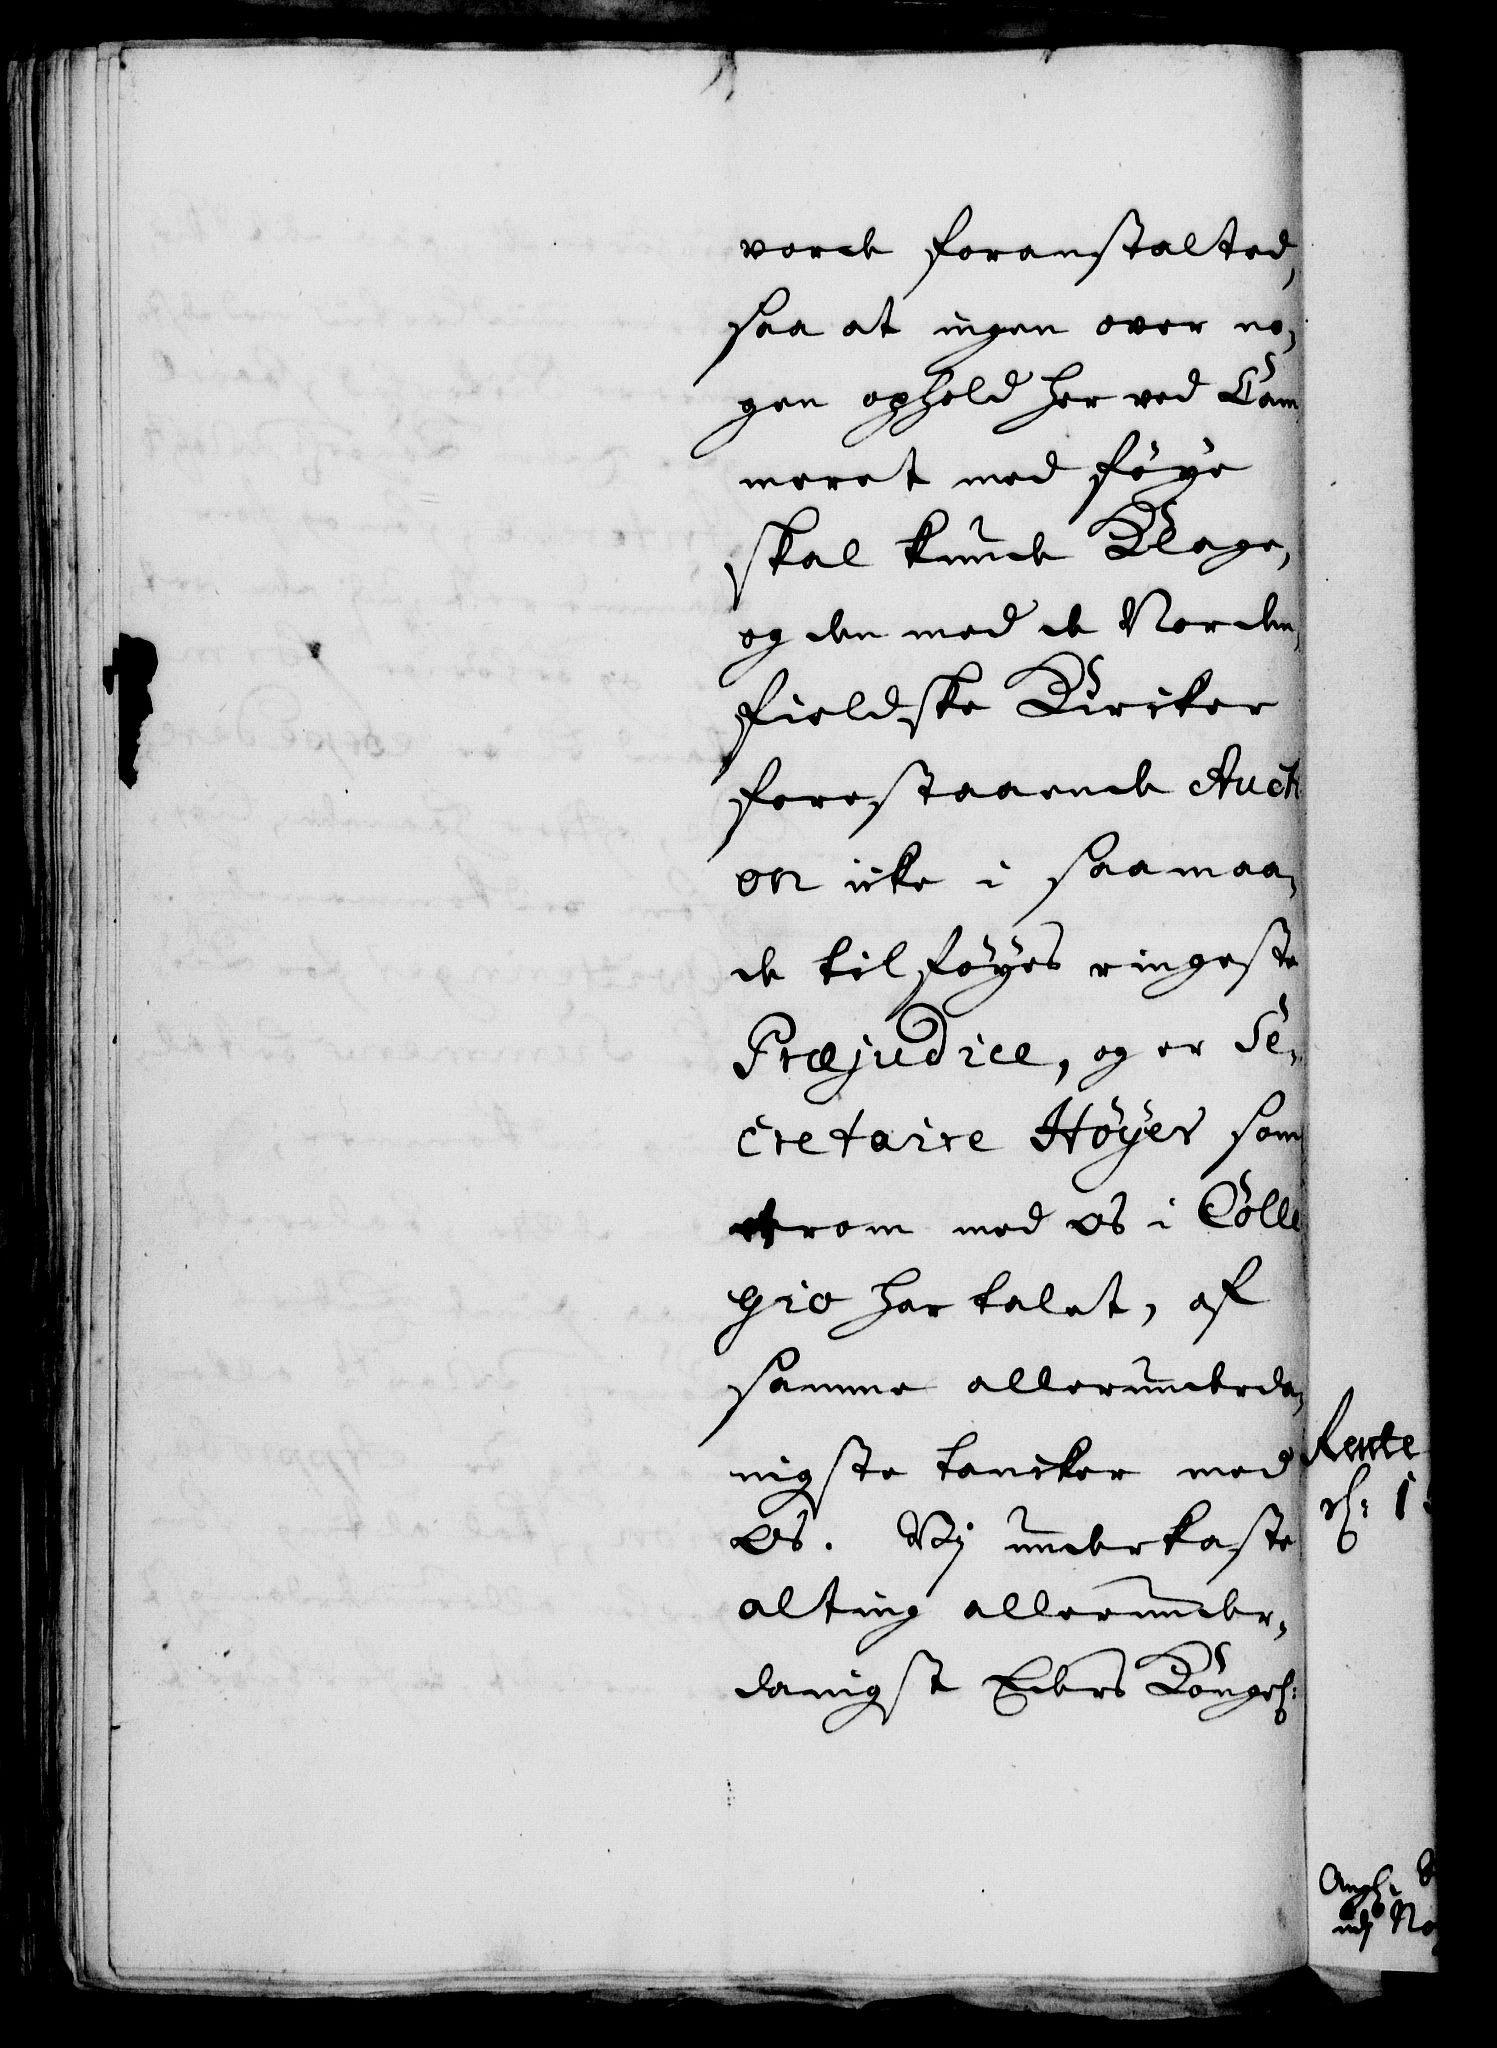 vorde foranstalted,
saa at ingen over no-
gen ophold her ved Cam
meret med føye
skal kunde Klage,
og den med de Norden-
fieldske Kircker
forestaaende Aucti
on icke i saa maa-
de tilføyes ringeste
Præjudice, og er Se-
cretaire Høyer som
erom med os i Colle
gio har talet, af
samme allerunderda-
nigste tancker med
Os. Vj underkaste
alting allerunder-
danigst Eders Kongel:
Rente